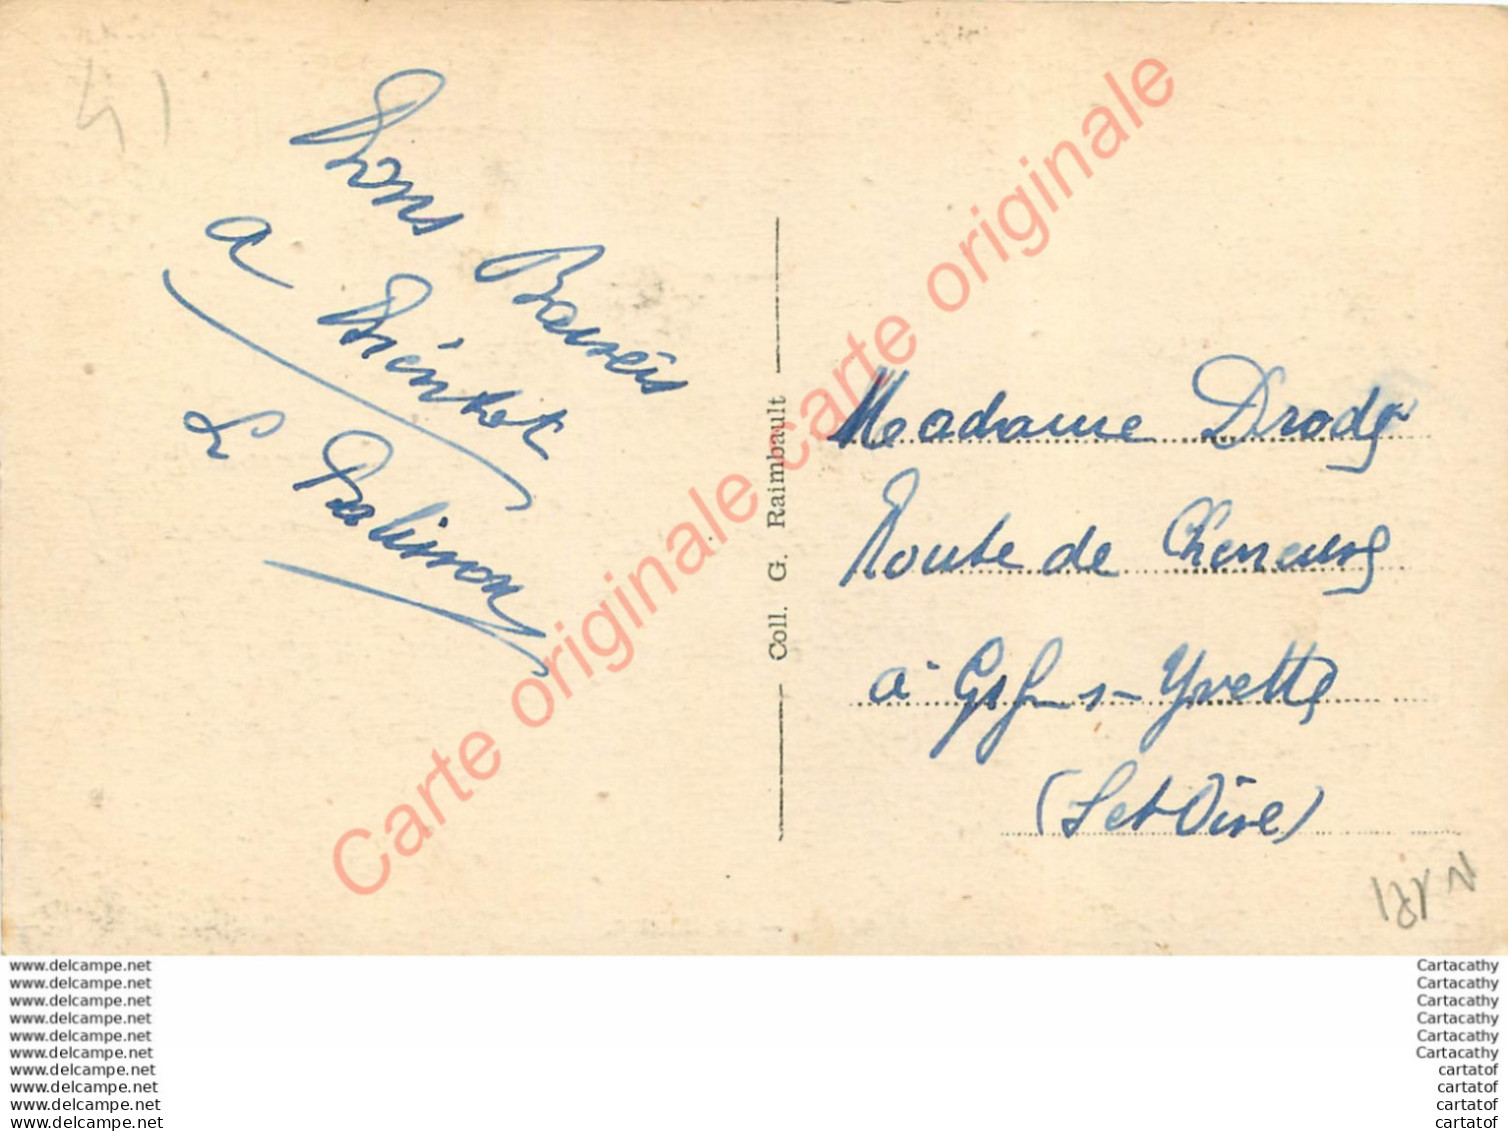 41
Bons Baisers
a Bientot
L Palisson
Coll. G. Raimbault
Madame
Route de
à Gif-s-Yvette
(S et Oise)
Carte originale carte originale
Carte originale
www.delcampe.net
www.delcampe.net
www.delcampe.net
www.delcampe.net
www.delcampe.net
www.delcampe.net
www.delcampe.net
www.delcampe.net
www.delcampe.net
www.delcampe.net
Cartacathy
Cartacathy
Cartacathy
Cartacathy
Cartacathy
Cartacathy
cartatof
cartatof
cartatof
cartatof